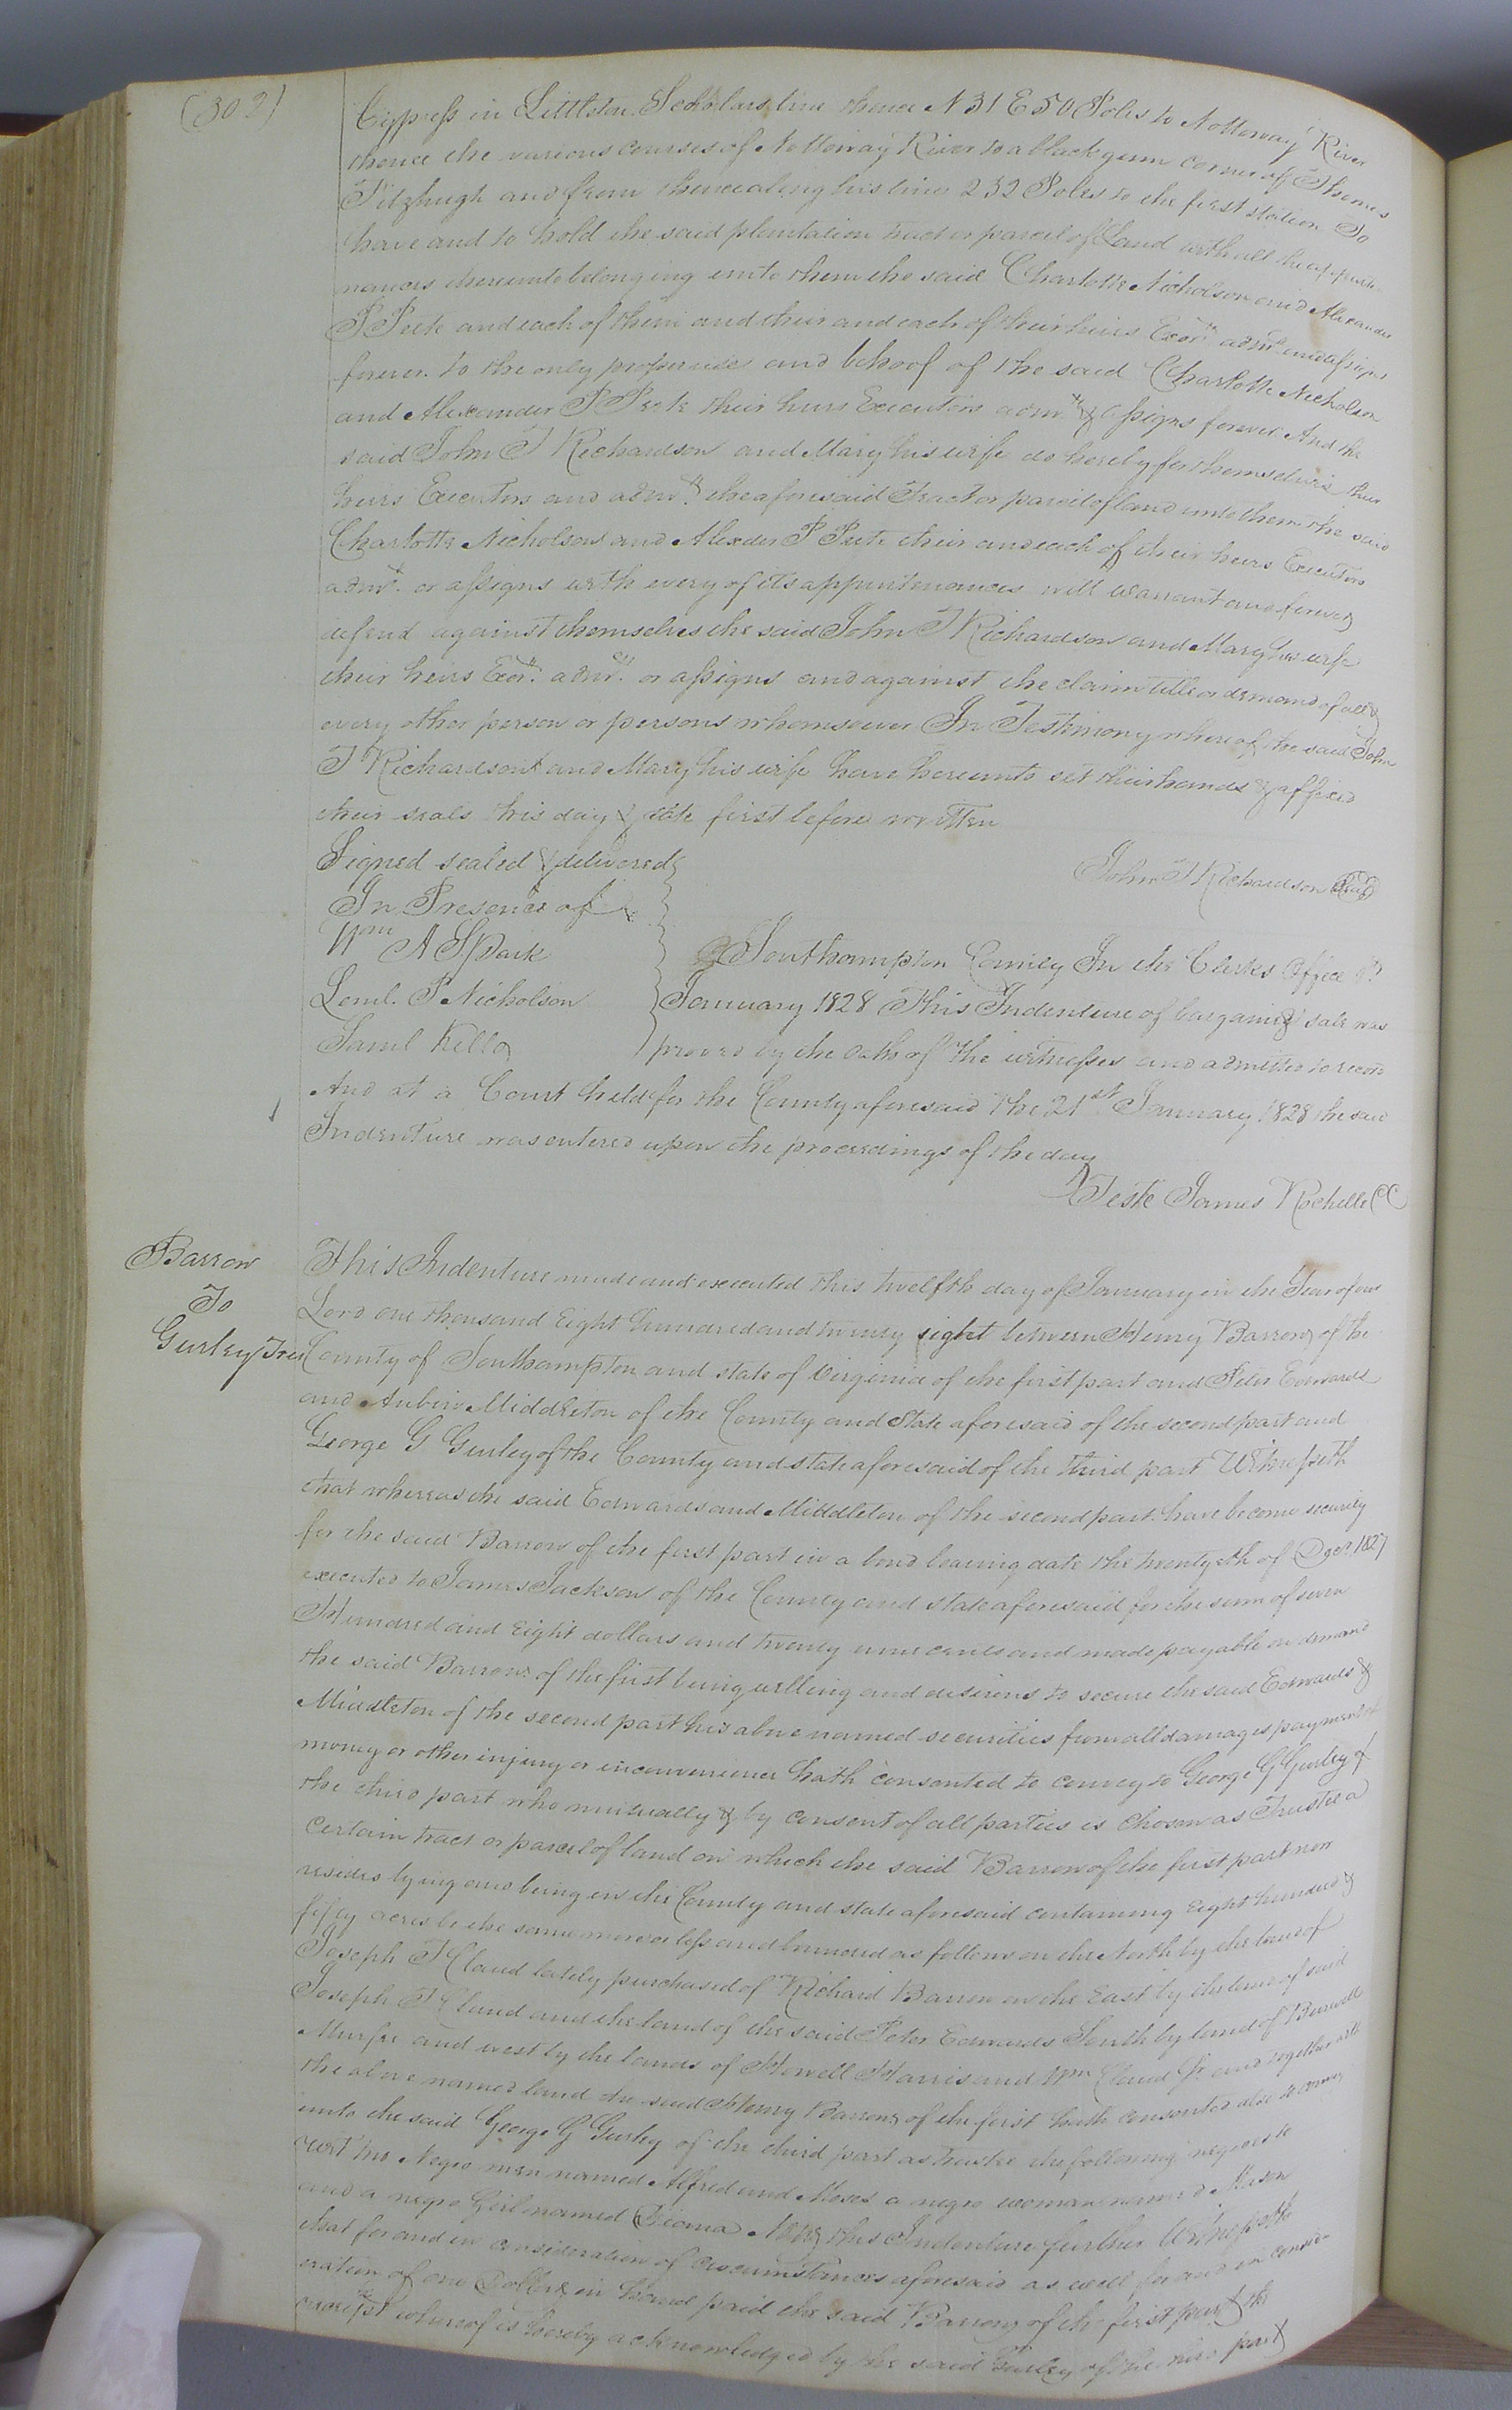 (302)
Cypress in Littleton Scholars line thence N 31 E 50 Poles to Nottoway River
thence the various courses of Nottoway River to a black gum corner of Thomas
Fitzhugh and from thence along his line 232 Poles to the first station To
have and to hold the said plantation tract or parcel of Land with all the appurte-
nances thereunto belonging unto them the said Charlotte Nicholson and Alexander
P Peete and each of them and their and each of their heirs Exors admrs and assigns
forever to the only proper use and behoof of the said Charlotte Nicholson
and Alexander P Peete their heirs Executors admrs & assigns forever And the
said John T Richardson and Mary his wife do hereby for themselves their
heirs Executors and admrs the aforesaid Tract or parcel of land unto them the said
Charlotte Nicholson and Alexder P Peete their and each of their heirs Executors
admrs. or assigns with every of its appurtenances will warrant and forever
defend against themselves the said John T Richardson and Mary his wife
their heirs Exors. admrs. or assigns and against the claim title or demand of all &
every other person or persons whomsoever In Testimony whereof the said John
T Richardson and Mary his wife have hereunto set their hands & affixed
their seals this day & date first before written
Signed sealed & delivered
John T Richardson Seal
In Presence of
Wm A Spark
Leml. P Nicholson
Saml Kello
Southampton County In the Clerks Office
January 1828 This Indenture of bargain & sale was
proved by the oaths of the witnesses and admitted to record
And at a Court held for the County aforesaid the 21st January 1828 the said
Indenture was entered upon the proceedings of the day
Teste James Rochelle CC
Barrow
To
Gurley Trus
This Indenture made and executed this twelfth day of January in the Year of our
Lord one thousand Eight hundred and twenty eight between Henry Barrow of the
County of Southampton and state of Virginia of the first part and Peter Edwards
and Aubin Middleton of the County and State aforesaid of the second part and
George G Gurley of the County and state aforesaid of the third part Witnesseth
that whereas the said Edwards and Middleton of the second part have become security
for the said Barrow of the first part in a bond bearing date the twenty 8th of Decr. 1827
executed to James Jackson of the County and state aforesaid for the sum of seven
Hundred and Eight dollars and twenty nine cents and made payable on demand
the said Barrow of the first being willing and desirous to secure the said Edwards &
Middleton of the second part his above named securities from all damages payment of
money or other injury or inconvenience hath consented to convey to George G Gurley of
the third part who mutually & by consent of all parties is chosen as Trustee a
certain tract or parcel of land on which the said Barrow of the first part now
resides lying and being in the County and state aforesaid containing Eight hundred &
fifty acres be the same more or less and bounded as follows on the North by the land of
Joseph T Claud lately purchased of Richard Barrow on the East by the land of said
Joseph T Claud and the land of the said Peter Edwards South by land of Burwell
Murfee and west by the lands of Howell Harris and Wm Claud Jr and together with
the above named land the said Henry Barrow of the first hath consented also to convey
unto the said George G Gurley of the third part as trustee the following negroes to
wit two Negro men named Alfred and Moses a negro woman named Mason
and a negro Girl named Now this Indenture further Witnesseth
that for and in consideration of circumstances aforesaid as well for and in consid-
eration of one Dollar in hand paid the said Barrow of the first part the
receipt whereof is hereby acknowledged by the said Gurley of the third part